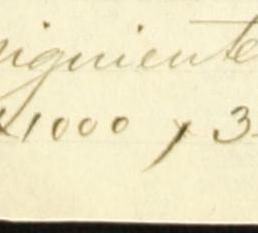 siguiente
1000 y 3